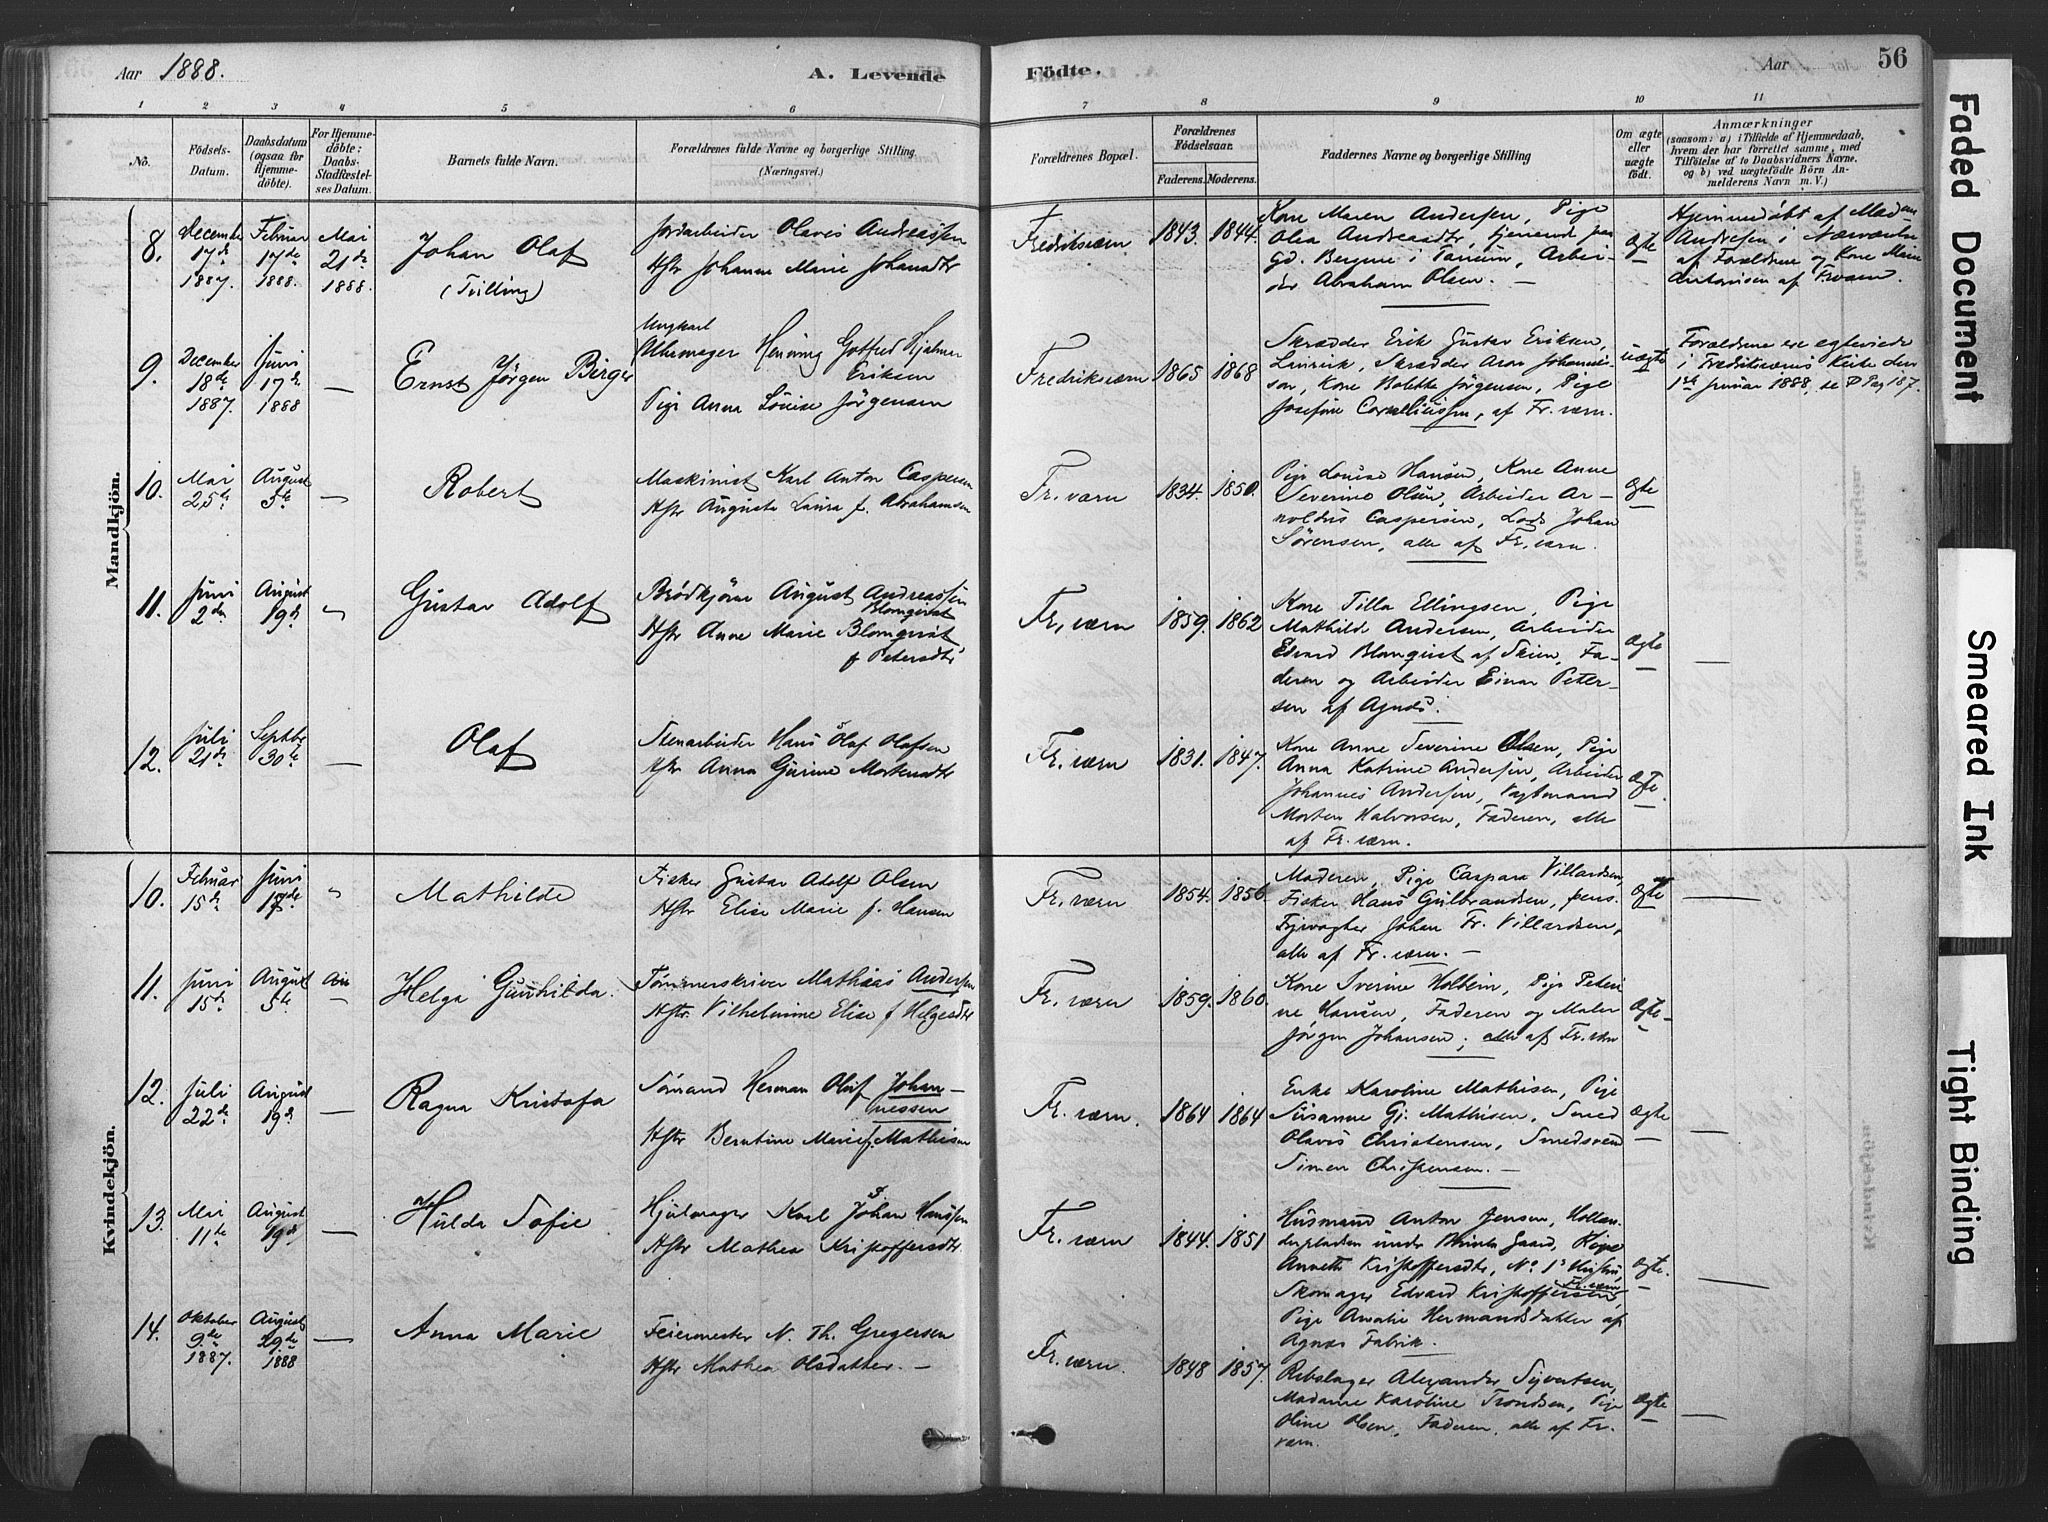 Aar 1888.
A. Levende
Födte.
Aar
56
1 2 3 4 5 6 7 8 9 10 11
No.
Födsels-
Datum.
Daabsdatum
(ogsaa for
Hjemme-
döbte).
For Hjemme-
döbte:
Daabs-
Stadfæstel-
ses Datum.
Barnets fulde Navn.
Forældrenes fulde Navne og borgerlige Stilling
(Næringsvei.)
Forældrenes Bopæl.
Forældrenes
Födselsaar.
Faderens. Moderens.
Faddernes Navne og borgerlige Stilling
Om ægte
eller
uægte
födt.
Anmærkninger
(saasom: a) i Tilfælde af Hjemmedaab,
hvem der har forrettet samme, med
Tilföielse af to Daabsvidners Navne.
og b) ved uægtefödte Börn An-
melderens Navn m. V.)
Mandkjön.
8.
December
17de
1887.
Februar
17de
1888.
Mai
21de
1888.
Johan Olaf
(Tvilling)
Jordarbeider Olavis Andreassen
Hstr Johanne Marie Johansdtr
Fredriksværn
1843. 1844.
Kone Maren Andersen, Pige
Olea Andreasdtr, tjenende paa
Gd. Bergene i Tanum, Arbei-
der Abraham Olsen. —
Ægte
Hjemmedøbt af Madam
Andresen i Nærværelse
af Forældrene og Kone Marie
Antonisen af Fr.værn.
9.
December
18de
1887.
Juni
17de
1888
—
Ernst Jörgen Birger
Ungkarl
Uhrmager Henning Gotfred Hjalmar
Eriksen
Pige Anna Louise Jörgensen
Fredriksværn
1865 1868
Skrædder Erik Gustav Eriksen,
Larvik, Skrædder Aron Johannes-
sen, Kone Bolette Jörgensen, Pige
Josefine Corneliussen, af Fr. værn.
uægte
Forældrene ere egteviede
i Fredriksværns Kirke den
1ste Januar 1888, se D Pag 187.
10.
Mai
25de
August
5te
—
Robert
Maskinist Karl Anton Caspersen
Hstr Augusta Laura f. Abrahamsen
Fr. værn
1834. 1850.
Pige Louise Hansen, Kone Anne
Severine Olsen, Arbeider Ar-
noldus Caspersen, Lods Johan
Sörensen, alle af Fr. værn.
Ægte
11.
Juni
2den
August
19de
Gustav Adolf
Brödkjörer August Andreassen
Blomqvist
Hstr Anne Marie Blomqvist
f Petersdtr
Fr. værn
1859. 1862
Kone Tilla Ellingsen, Pige
Mathilde Andersen, Arbeider
Edvard Blomqvist af Skien, Fa-
deren og Arbeider Einar Peter-
sen af Agnes.
Ægte
—
12.
Juli
21de
Septbr
30te
—
Olaf
Stenarbeider Hans Olaf Olafsen
Hstr Anna Gurine Mortensdtr
Fr. værn
1831. 1847.
Kone Anne Severine Olsen, Pige
Anna Katrine Andersen, Arbeider
Johannes Andersen, Vagtmand
Morten Halvorsen, Faderen, alle
af Fr. værn.
Ægte.
Kvindekjön.
10.
Februar
15de
Juni
17de
Mathilde
Fisker Gustav Adolf Olsen
Hstr Elise Marie f. Hansen
Fr. værn
1854. 1856.
Moderen, Pige Caspara Villardsen,
Fisker Hans Gulbrandsen, pens.
Fyrvogter Johan Fr. Villardsen,
alle af Fr. værn. —
Ægte
—
11.
Juni
15de
August
5te
Helga Gunhilda.
Tömmerskriver Mathias Andersen
Hstr. Vilhelmine Elise f Helgesdtr
Fr. værn
1859. 1860.
Kone Iverine Holbein, Pige Petri-
ne Hansen, Faderen og Maler
Jörgen Johansen; alle af Fr. værn
Ægte
12.
Juli
22de
August
19de
—
Ragna Kristofa
Sömand Herman Oluf Johan-
nessen
Hstr Berntine Marie f. Mathisen
Fr. værn.
1864 1864
Enke Karoline Mathisen, Pige
Susanne Gj. Mathisen, Smed
Olavis Christensen, Smedsvend
Simen Christensen. —
Ægte
—
13.
Mai
11te
August
19de
—
Hulda Sofie
Hjulmager Karl Johan Hansen
Hstr Mathea Kristoffersdtr.
Fr. værn
1844. 1851
Husmand Anton Jensen, Hollan-
derpladsen under Gaard, Pige
Annette Kristoffersdtr,
Fr. værn
Skomager Edvard Kristoffersen,
Pige Amalie Hermansdatter af
Agnes Fabrik.
Ægte.
—
14.
Oktober
9de
1887.
August
29de
1888
—
Anna Marie
Feiermester N. Th. Gregersen
Hstr Mathea Olsdatter. —
Fr. værn.
1848 1857.
Rebslager Alexander Syvertsen,
Madame Karoline Trondsen, Pige
Oline Olsen, Faderen, alle af Fr.
værn.
Ægte
—
Faded Document
Smeared Ink
Tight Binding